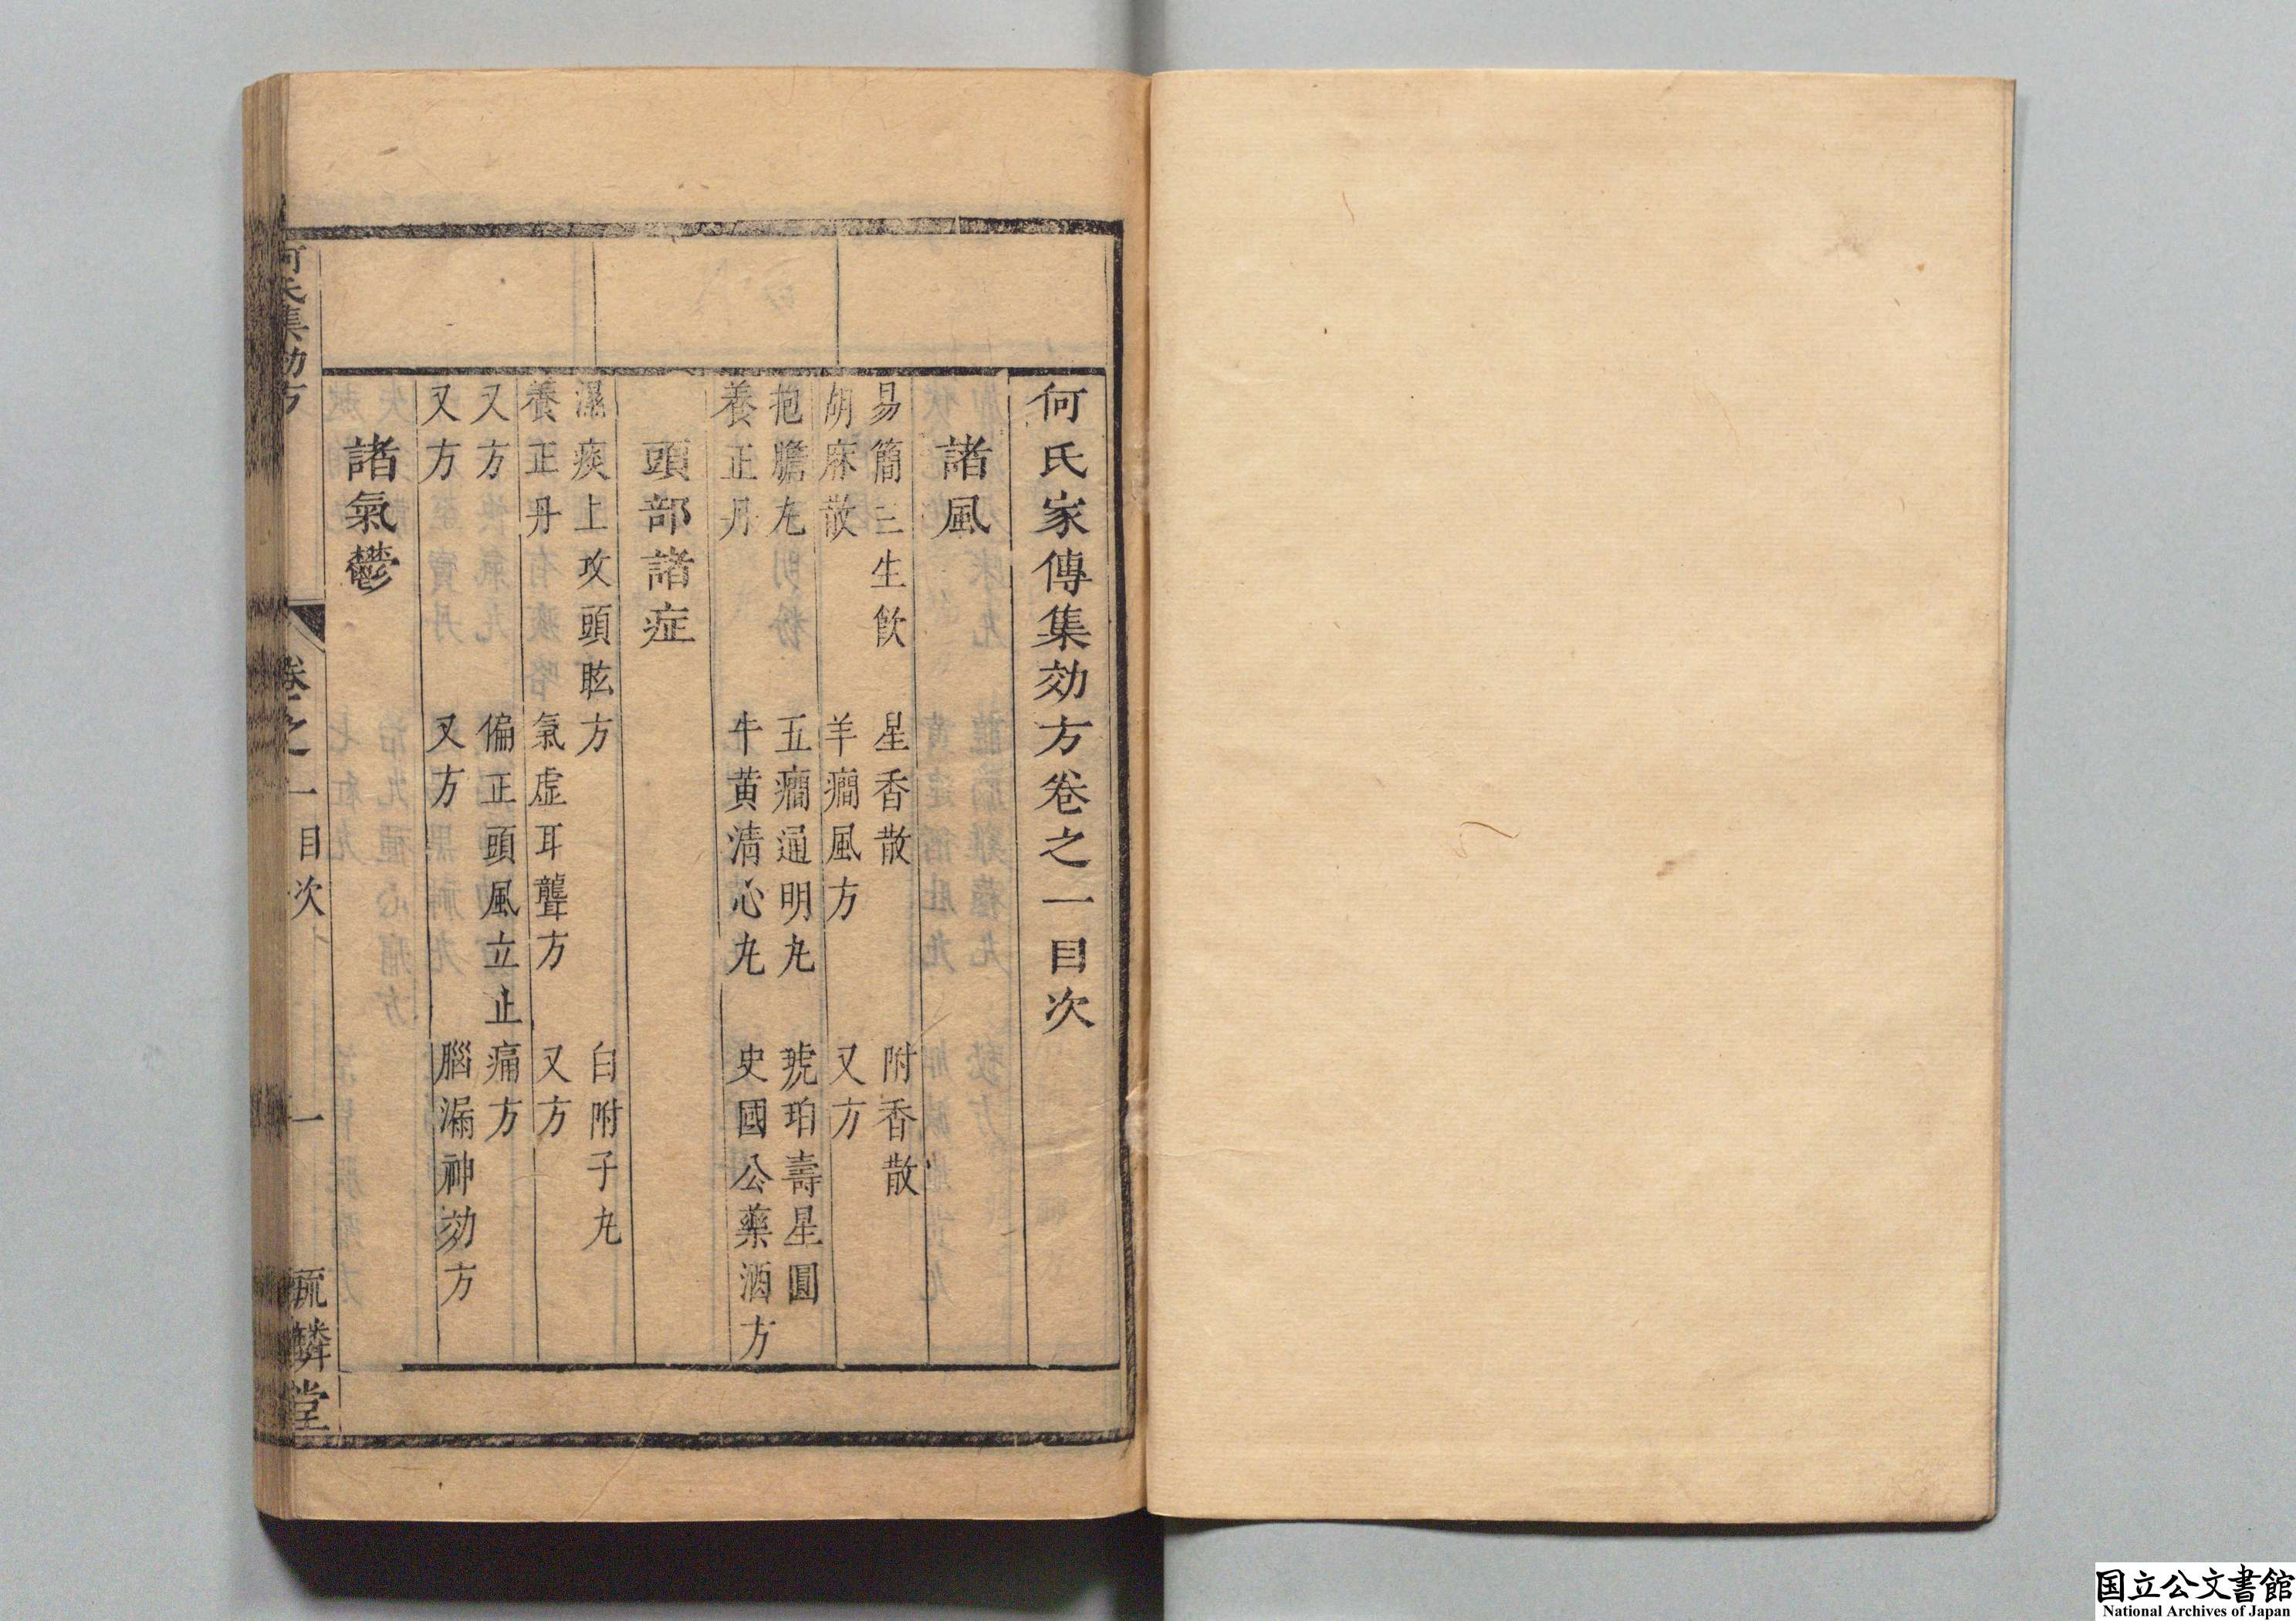 何氏家傳集効方卷之一目次
諸風
易簡三生飲 星香散 附香散
胡麻散 羊癎風方 又方
抱膽丸 五癎通明丸 琥珀壽星圓
養正丹 牛黄清心丸 史國公藥酒方
頭部諸症
濕痰上攻頭眩方 白附子丸
養正丹 氣虚耳聾方 又方
又方 偏正頭風立止痛方
又方 又方 腦漏神効方
諸氣鬱
何氏集効方 卷之一目次 一 麟堂
国立公文書館
National Archives of Japan